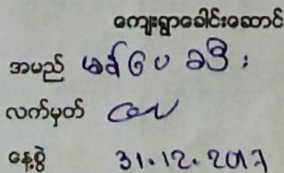 ကျေးရွာခေါင်းဆောင်
အမည် မန်ပေခင်း
လက်မှတ်
နေ့စွဲ 31.12.2017